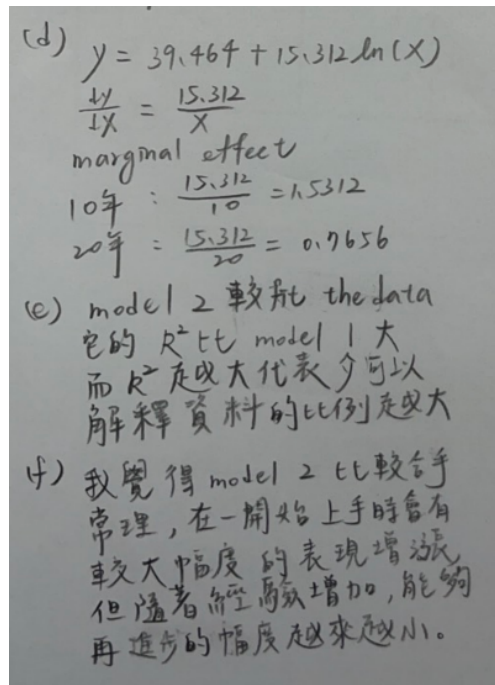 (d) y = 39.464 + 15.312 ln(x)
dy/dx = 15.312/x
marginal effect
10年 : 15.312/10 = 1.5312
20年 : 15.312/20 = 0.7656
(e) model 2 較fit the data
它的 R² 比 model 1 大
而 R² 越大代表 可以
解釋資料的比例越大
(f) 我覺得 model 2 比較合乎
常理, 在一開始上手時會有
較大幅度的表現增漲
但隨著經驗增加, 能夠
再進步的幅度越來越小。